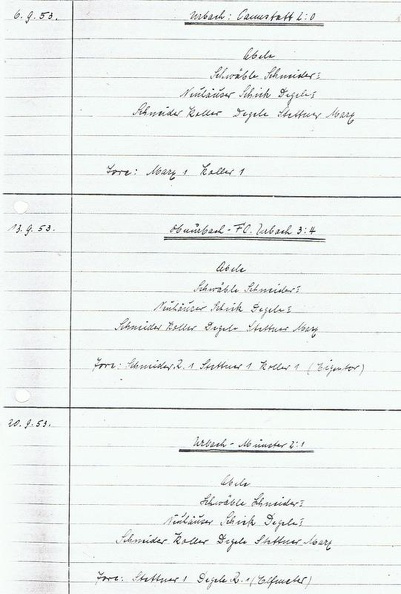 6.9.53.
Urbach : Cannstatt 2:0
Abele
Schwäble Schneider:
Neuhäuser Schick Degele:
Schneider Koller Degele Stettner Marx
Tore: Marx 1 Koller 1
13.9.53.
Oberurbach - FC. Urbach 3:4
Abele
Schwäble Schneider:
Neuhäuser Schick Degele:
Schneider Koller Degele Stettner Marx
Tore: Schneider R. 1 Stettner 1 Koller 1 (Eigentor)
20.9.53.
Urbach - Münster 2:1
Abele
Schwäble Schneider:
Neuhäuser Schick Degele:
Schneider Koller Degele Stettner Marx
Tore: Stettner 1 Degele R. 1 (Elfmeter)